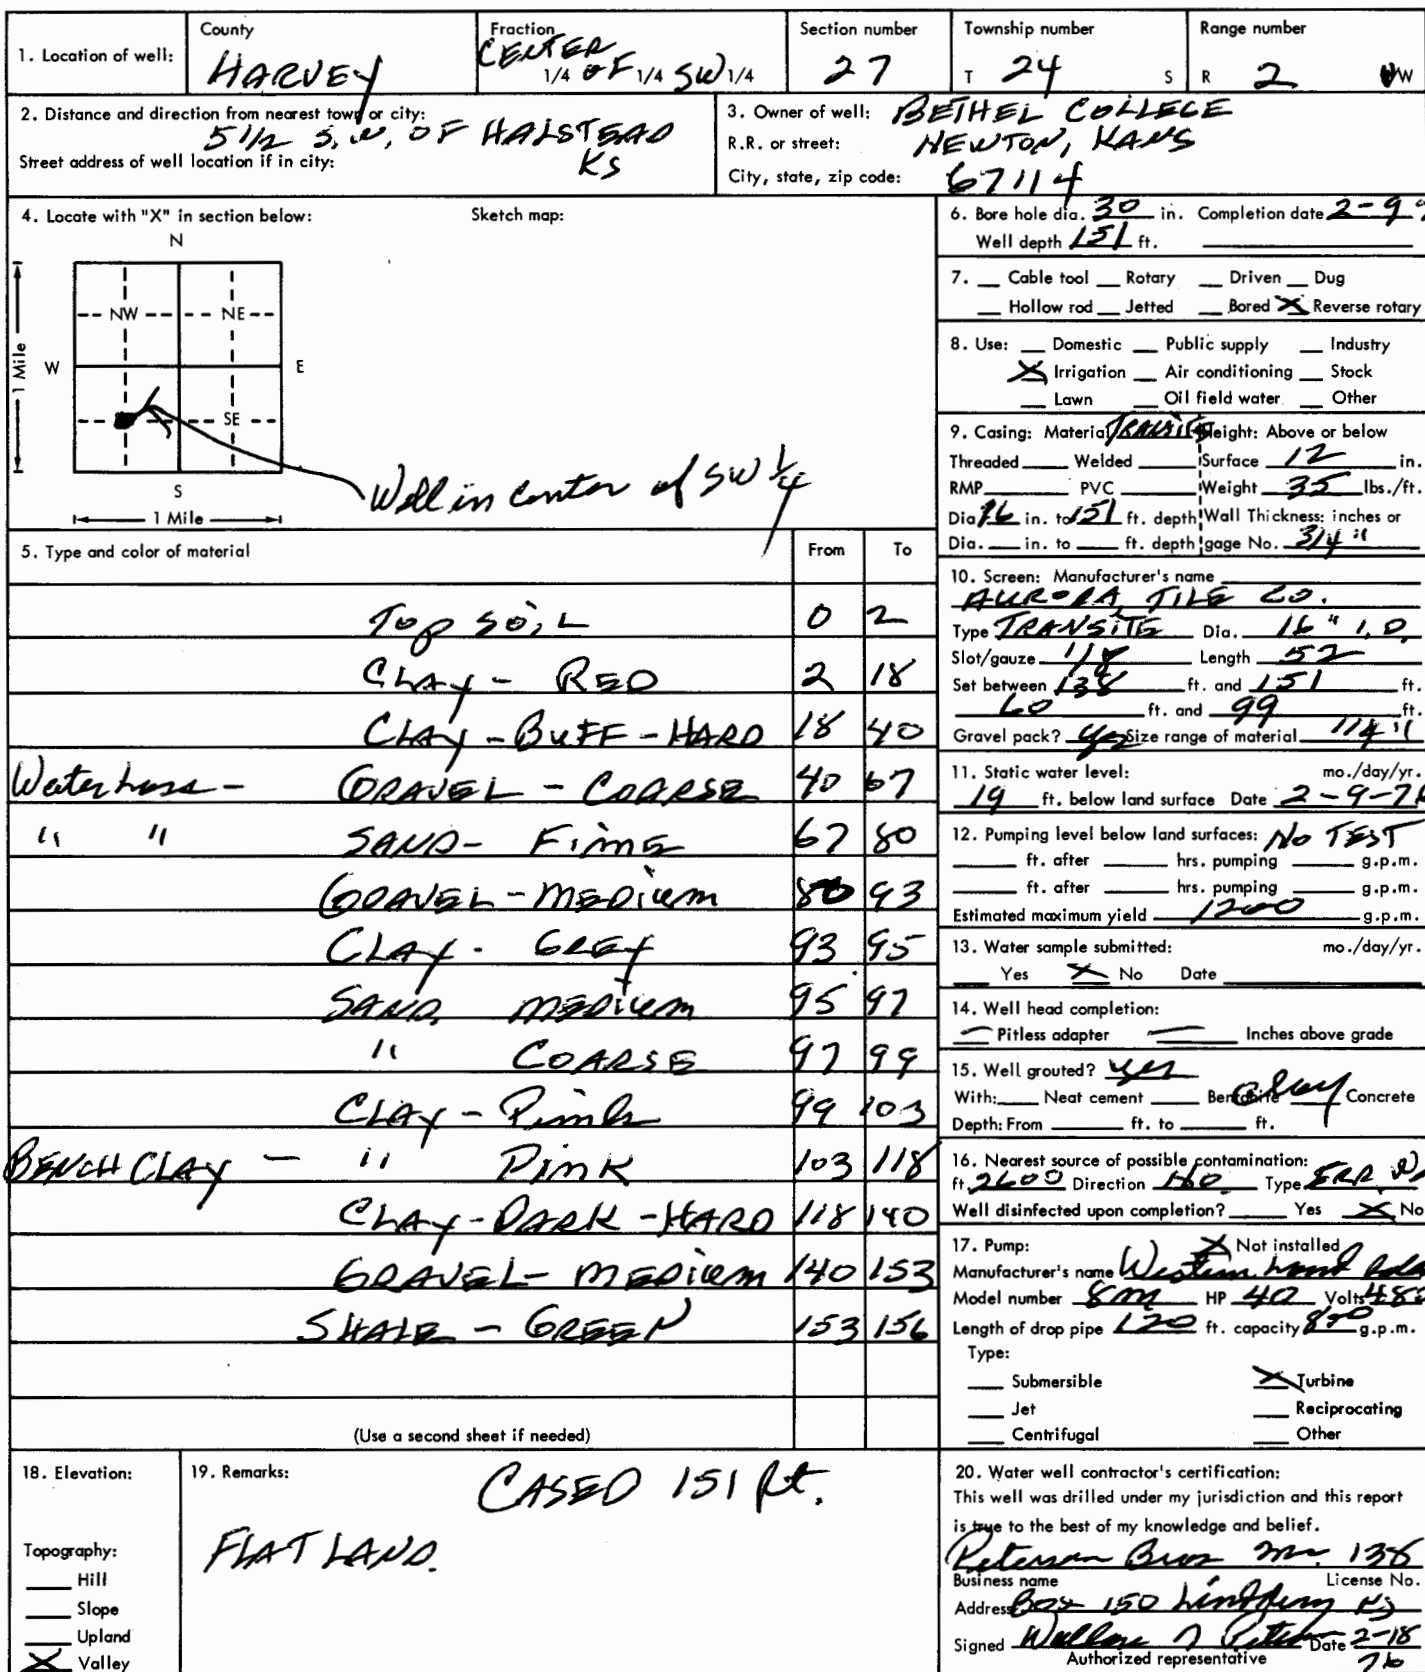 1. Location of well: County HARVEY Fraction CENTER 1/4 OF 1/4 SW 1/4 Section number 27 Township number T 24 S Range number R 2 W
2. Distance and direction from nearest town or city: 5 1/2 S.W. OF HALSTEAD KS
Street address of well location if in city:
3. Owner of well: BETHEL COLLEGE
R.R. or street: NEWTON, KANS
City, state, zip code: 67114
4. Locate with "X" in section below: Sketch map:
N
NW NE
W E
SE
S
1 Mile
1 Mile
Well in center of SW 1/4
5. Type and color of material From To
TOP SOIL 0 2
CLAY - RED 2 18
CLAY - BUFF - HARD 18 40
Water here - GRAVEL - COARSE 40 67
" " SAND - FINE 67 80
GRAVEL - MEDIUM 80 93
CLAY - GREY 93 95
SAND MEDIUM 95 97
" COARSE 97 99
CLAY - Pink 99 103
BENCH CLAY - " PINK 103 118
CLAY - DARK - HARD 118 140
GRAVEL - MEDIUM 140 153
SHALE - GREEN 153 156
(Use a second sheet if needed)
6. Bore hole dia. 30 in. Completion date 2-9
Well depth 151 ft.
7. Cable tool Rotary Driven Dug
Hollow rod Jetted Bored X Reverse rotary
8. Use: Domestic Public supply Industry
X Irrigation Air conditioning Stock
Lawn Oil field water Other
9. Casing: Material TRANSITE Height: Above or below
Threaded Welded Surface 12 in.
RMP PVC Weight 35 lbs./ft.
Dia 16 in. to 151 ft. depth Wall Thickness: inches or
Dia. in. to ft. depth gage No. 3/4"
10. Screen: Manufacturer's name
AURORA TILE CO.
Type TRANSITE Dia. 16" I.D.
Slot/gauze 1/8 Length 52
Set between 138 ft. and 151 ft.
60 ft. and 99 ft.
Gravel pack? Yes Size range of material 1/4"
11. Static water level: mo./day/yr.
19 ft. below land surface Date 2-9-76
12. Pumping level below land surfaces: NO TEST
ft. after hrs. pumping g.p.m.
ft. after hrs. pumping g.p.m.
Estimated maximum yield 1200 g.p.m.
13. Water sample submitted: mo./day/yr.
Yes X No Date
14. Well head completion:
Pitless adapter Inches above grade
15. Well grouted? yes
With: Neat cement Bentonite Clay Concrete
Depth: From ft. to ft.
16. Nearest source of possible contamination:
ft. 2600 Direction Type
Well disinfected upon completion? Yes X No
17. Pump: X Not installed
Manufacturer's name Western Land
Model number 8M HP 40 Volts 480
Length of drop pipe 120 ft. capacity 800 g.p.m.
Type:
Submersible X Turbine
Jet Reciprocating
Centrifugal Other
18. Elevation:
Topography:
Hill
Slope
Upland
X Valley
19. Remarks: CASED 151 ft.
FLAT LAND.
20. Water well contractor's certification:
This well was drilled under my jurisdiction and this report
is true to the best of my knowledge and belief.
Peterson Bros 138
Business name License No.
Address Box 150 Lindsborg Ks
Signed Wallace Date 2-18
76
Authorized representative